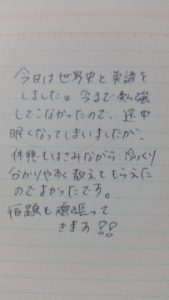 今日は世界史と英語を
しました。今まで勉強
してこなかったので、途中
眠くなってしまいましたが、
休憩もはさみながら、ゆっくり
分かりやすく教えてもらえた
のでよかったです。
宿題も頑張って
きます!!